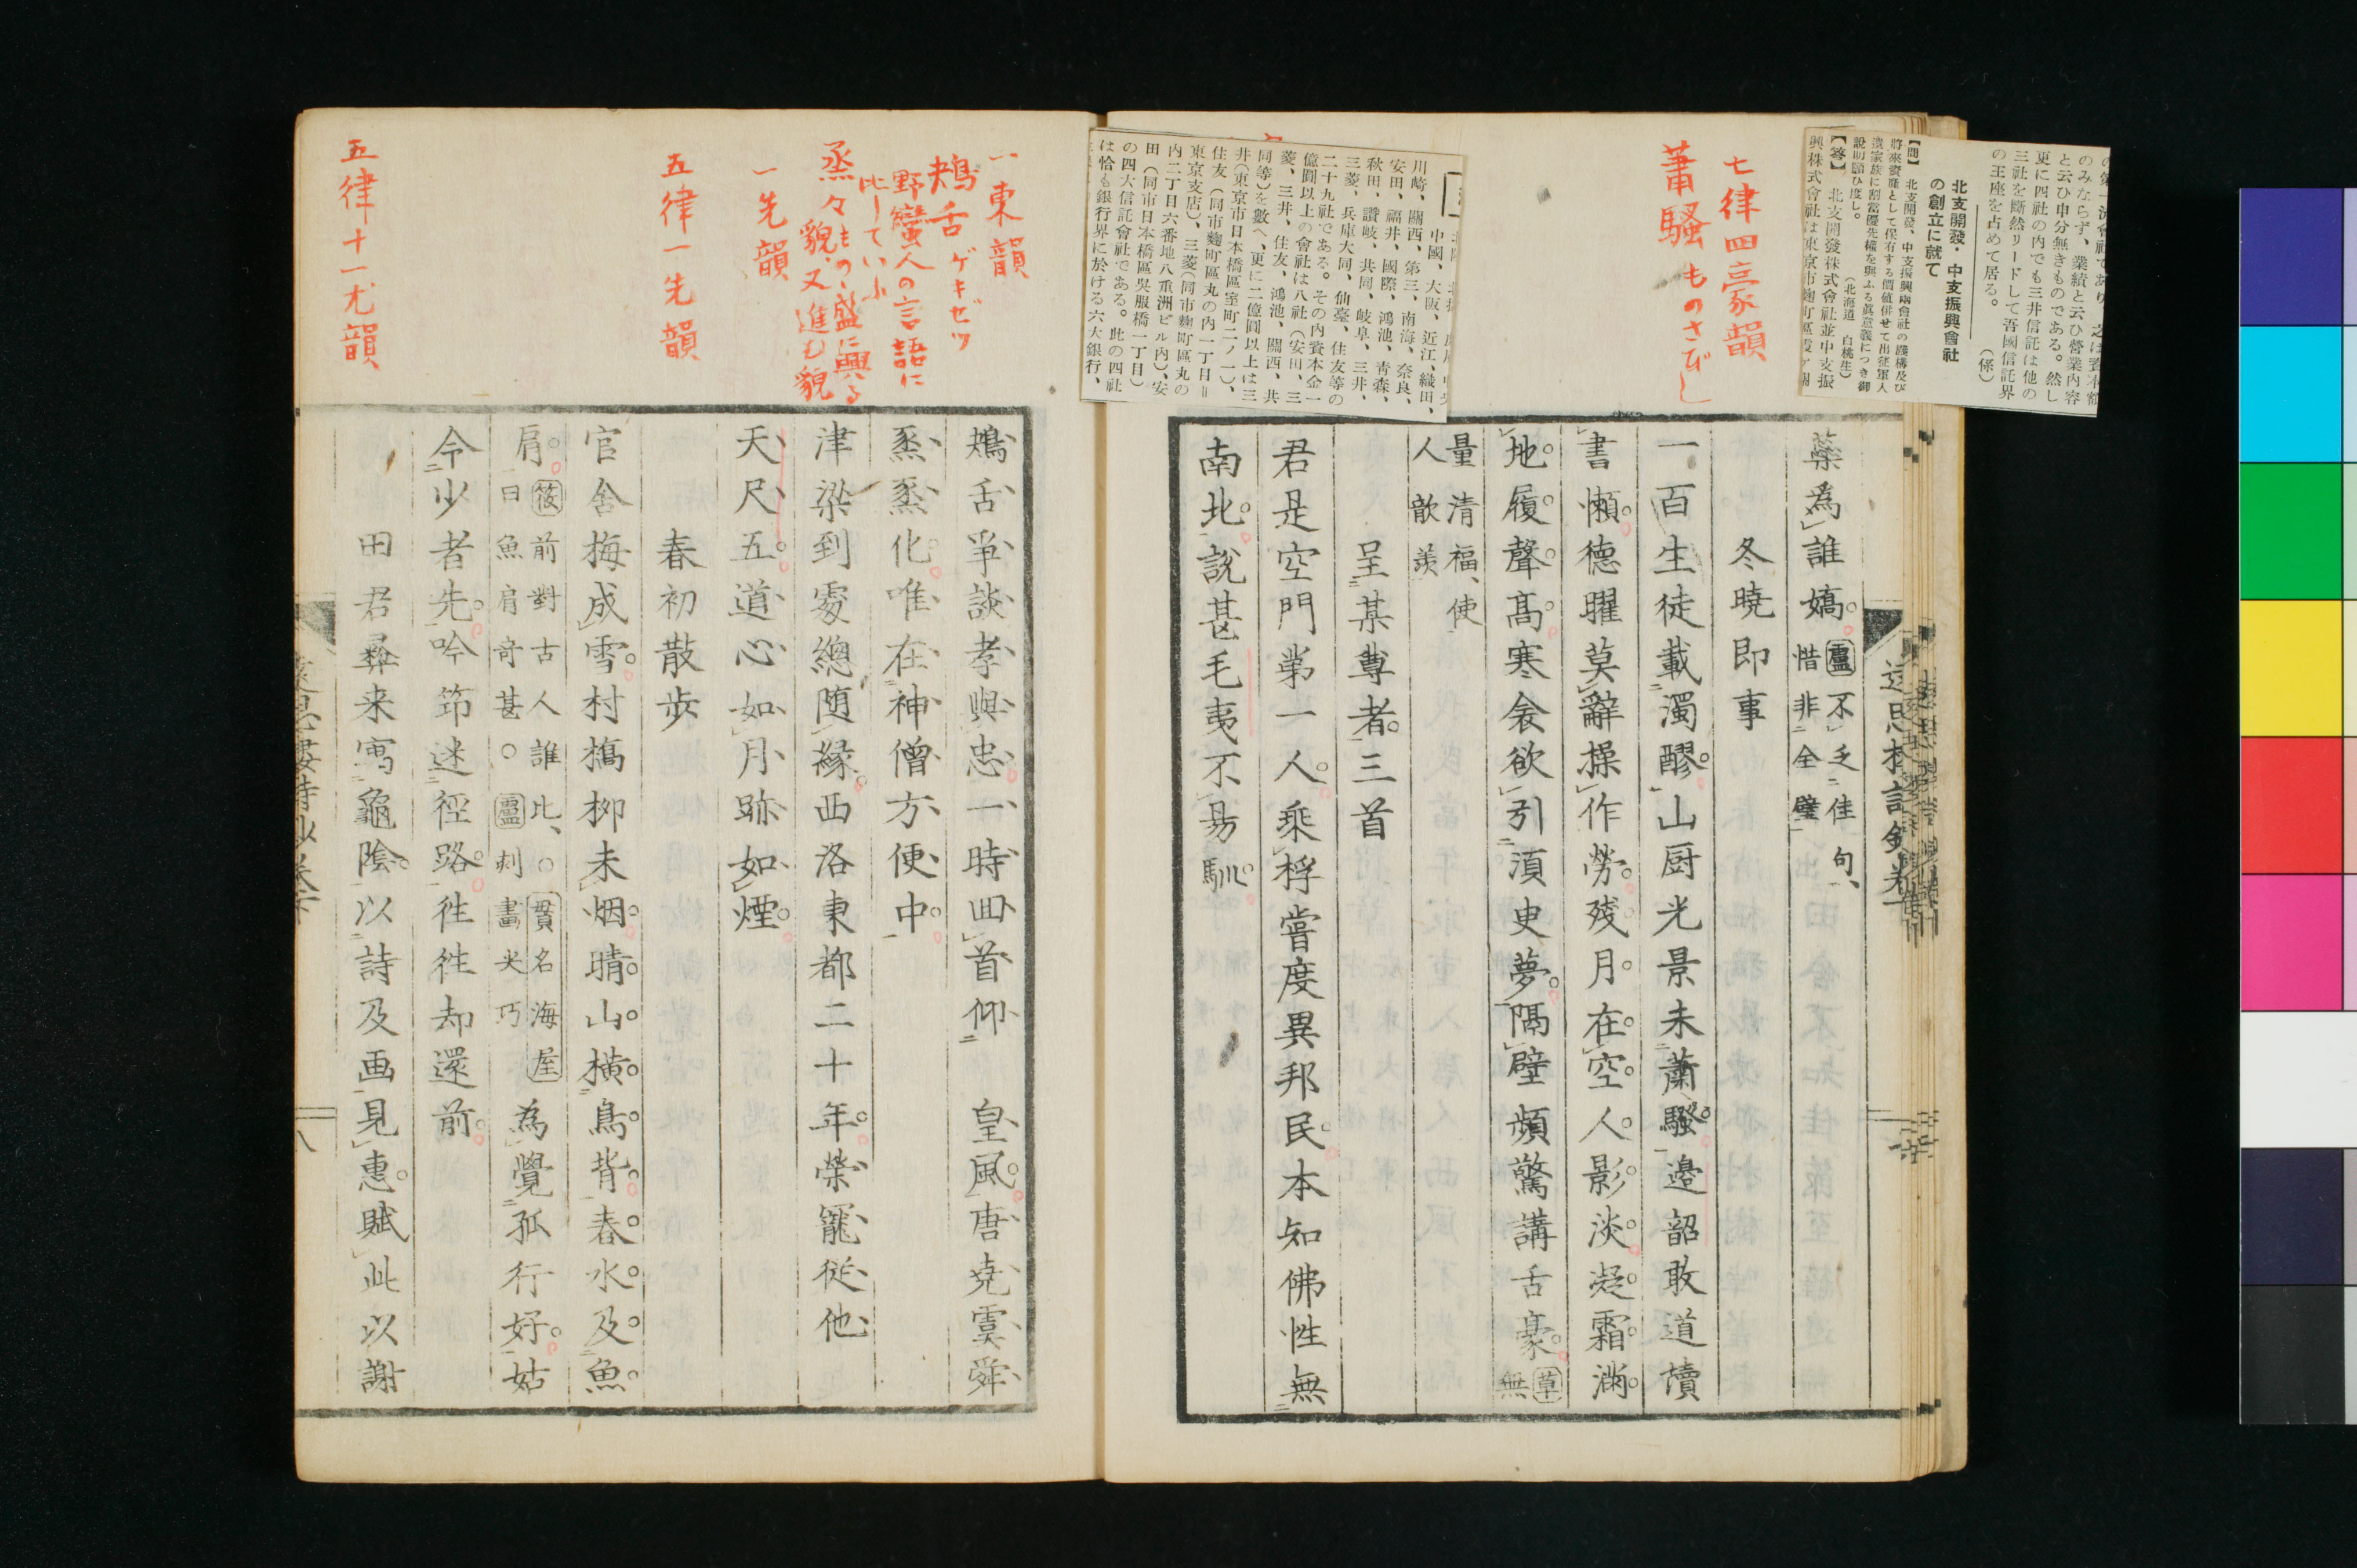 の第一流會社であり、之は資本額
のみならず、業績と云ひ營業内容
と云ひ申分無きものである。然し
更に四社の内でも三井信託は他の
三社を斷然リードして吾國信託界
の王座を占めて居る。（係）
北支開發・中支振興會社
の創立に就て
【問】 北支開發、中支振興兩會社の機構及び
將來資産として保有する價値併せて出征軍人
遺家族に割當優先權を與ふる眞意義につき御
說明願ひ度し。（北海道 白桃生）
【答】 北支開發株式會社並中支振
興株式會社は東京市麹町區
七律四豪韻
蕭騷ものさびし
中國、大阪、近江、織田、
川崎、關西、第三、南海、奈良、
安田、福井、國際、鴻池、青森、
秋田、讚岐、共同、岐阜、三井、
三菱、兵庫大同、仙臺、住友等の
二十九社である。その内資本金一
億圓以上の會社は八社（安田、三
菱、三井、住友、鴻池、關西、共
同等）を數へ、更に二億圓以上は三
井（東京市日本橋區室町二ノ一）、
住友（同市麹町區丸の内一丁目＝
東京支店）、三菱（同市麹町區丸の
内二丁目六番地八重洲ビル内）、安
田（同市日本橋區吳服橋一丁目）
の四大信託會社である。此の四社
は恰も銀行界に於ける六大銀行、
藥為誰嬌 靈不乏佳句、
惜非全璧
冬曉即事
一百生徒載濁醪山厨光景未蕭騷邊韶敢道讀
書懶德曜莫辭操作勞殘月在空人影淡凝霜滿
地履聲高寒衾欲引須臾夢隔壁頻驚講舌豪 草無
量清福、使
人歆羨
呈某尊者三首
君是空門第一人乘桴嘗度異邦民本知佛性無
南北說甚毛夷不易馴
一東韻
鴂舌 ゲキゼツ
野蠻人の言語に
比していふ
烝々もの、盛に興る
貌、又進む貌
一先韻
五律一先韻
五律十一尤韻
鴂舌爭談孝與忠一時回首仰 皇風唐堯虞舜
烝烝化唯在神僧方便中
津梁到處總随緣西洛東都二十年榮寵從他
天尺五道心如月跡如煙
春初散步
官舍梅成雪村橋柳未烟晴山橫鳥背春水及魚
肩 筱前對古人誰比、○貫名海屋
曰魚肩奇甚○靈刻畫尖巧
為覺孤行好姑
令少者先吟筇迷徑路往往却還前
田君彝来寓龜陰以詩及画見惠賦此以謝
八